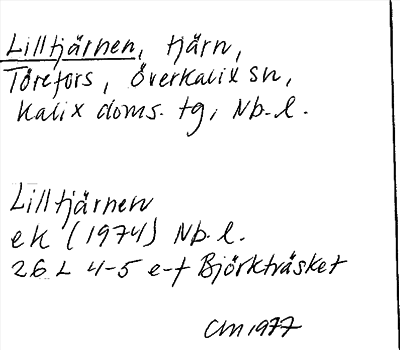 Lilltjärnen, tjärn,
Törefors, Överkalix sn,
Kalix doms. tg, Nb. l.
Lilltjärnen
ek (1974) Nb. l.
26 L 4-5 e-f Björkträsket
CM 1977